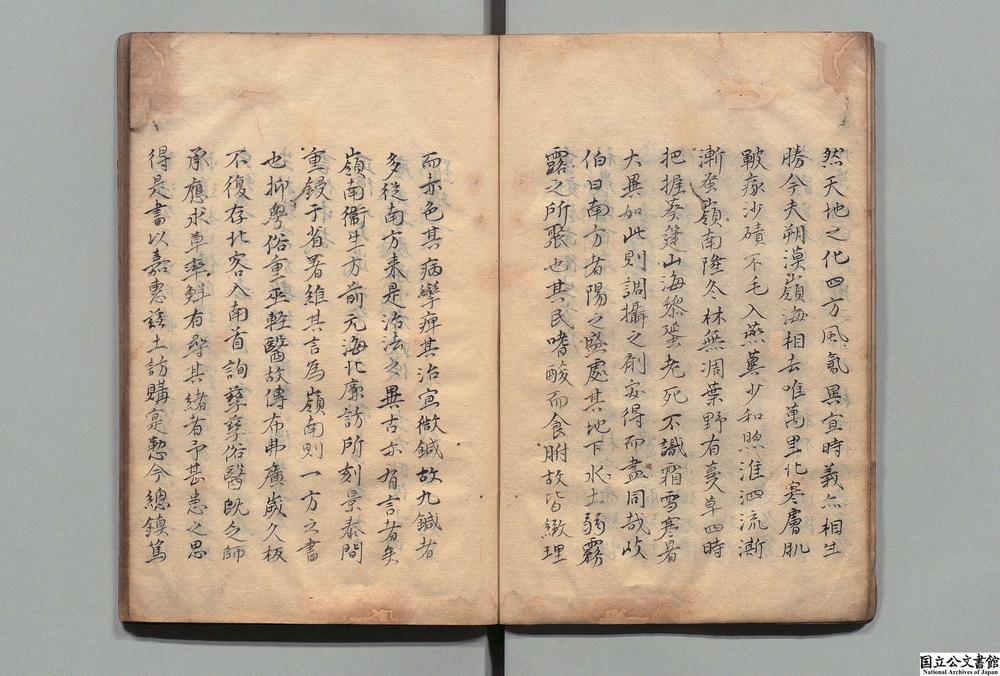 然天地之化四方風氣異宜時義亦相生
勝今夫朔漠嶺海相去唯萬里北寒膚肌
皸瘃沙磧不毛入燕冀少和煦淮泗流澌
漸蚤嶺南隆冬林無凋葉野有蔓草四時
把握奏箑山海黎蜑老死不識霜雪寒暑
大異如此則調攝之劑安得而盡同哉岐
伯曰南方者陽之盛處其地下水土弱霧
露之所聚也其民嗜酸而食胕故皆緻理
而赤色其病攣痺其治宜微鍼故九鍼者
多從南方來是治法之異古亦有言者矣
嶺南衞生方前元海北廉訪所刻景泰間
重鋟于省署維其言為嶺南則一方之書
也抑粵俗重巫輕醫故傳布弗廣歲久板
不復存北客入南首詢孳孳俗醫既乏師
承應求草率鮮有尋其緒者予甚患之思
得是書以嘉惠該土訪購寔懃今總鎮篤
国立公文書館
National Archives of Japan